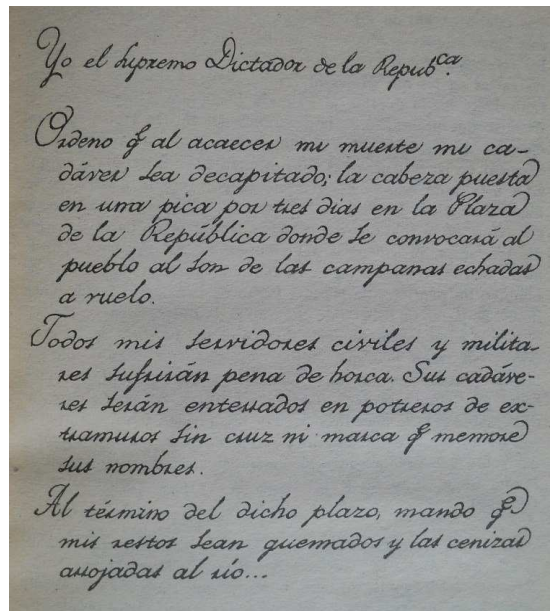 Yo el Supremo Dictador de la Repubca.
Ordeno q al acaecer mi muerte mi ca-
dáver sea decapitado; la cabeza puesta
en una pica por tres dias en la Plaza
de la República donde se convocará al
pueblo al son de las campanas echadas
a vuelo.
Todos mis servidores civiles y milita-
res sufrirán pena de horca. Sus cadáve-
res serán enterrados en potreros de ex-
tramuros sin cruz ni marca q memore
sus nombres.
Al término del dicho plazo, mando qe
mis restos sean quemados y las cenizas
arrojadas al río...